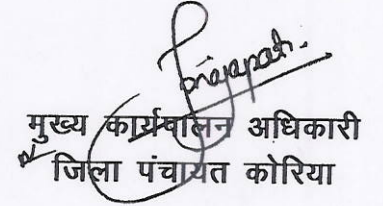 Prajapati.
मुख्य कार्यपालन अधिकारी
जिला पंचायत कोरिया